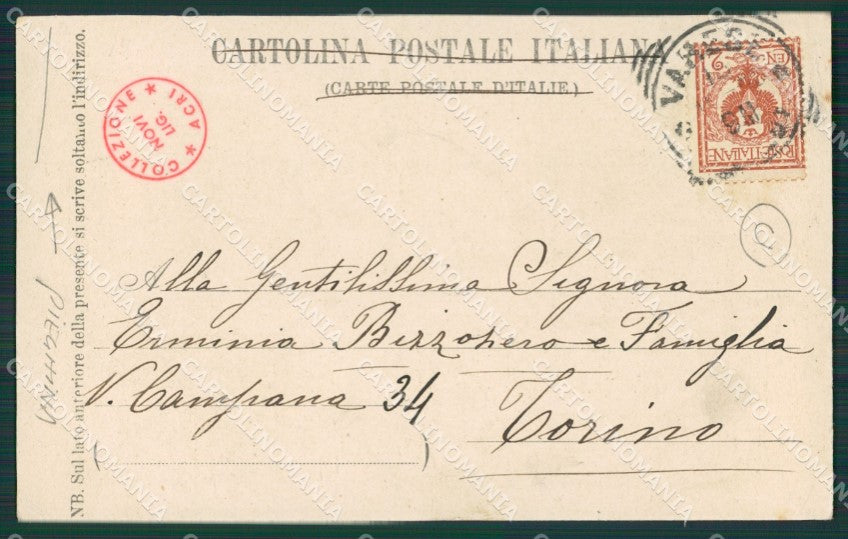 CARTOLINA POSTALE ITALIANA
(CARTE POSTALE D'ITALIE)
COLLEZIONE ACRI
NOVI
LIG.
VARESE
POSTE ITALIANE
Alla Gentilissima Signora
Erminia Bizzozero e Famiglia
V. Campana 34
Torino
NB. Sul lato anteriore della presente si scrive soltanto l'indirizzo.
CARTOLINOMANIA